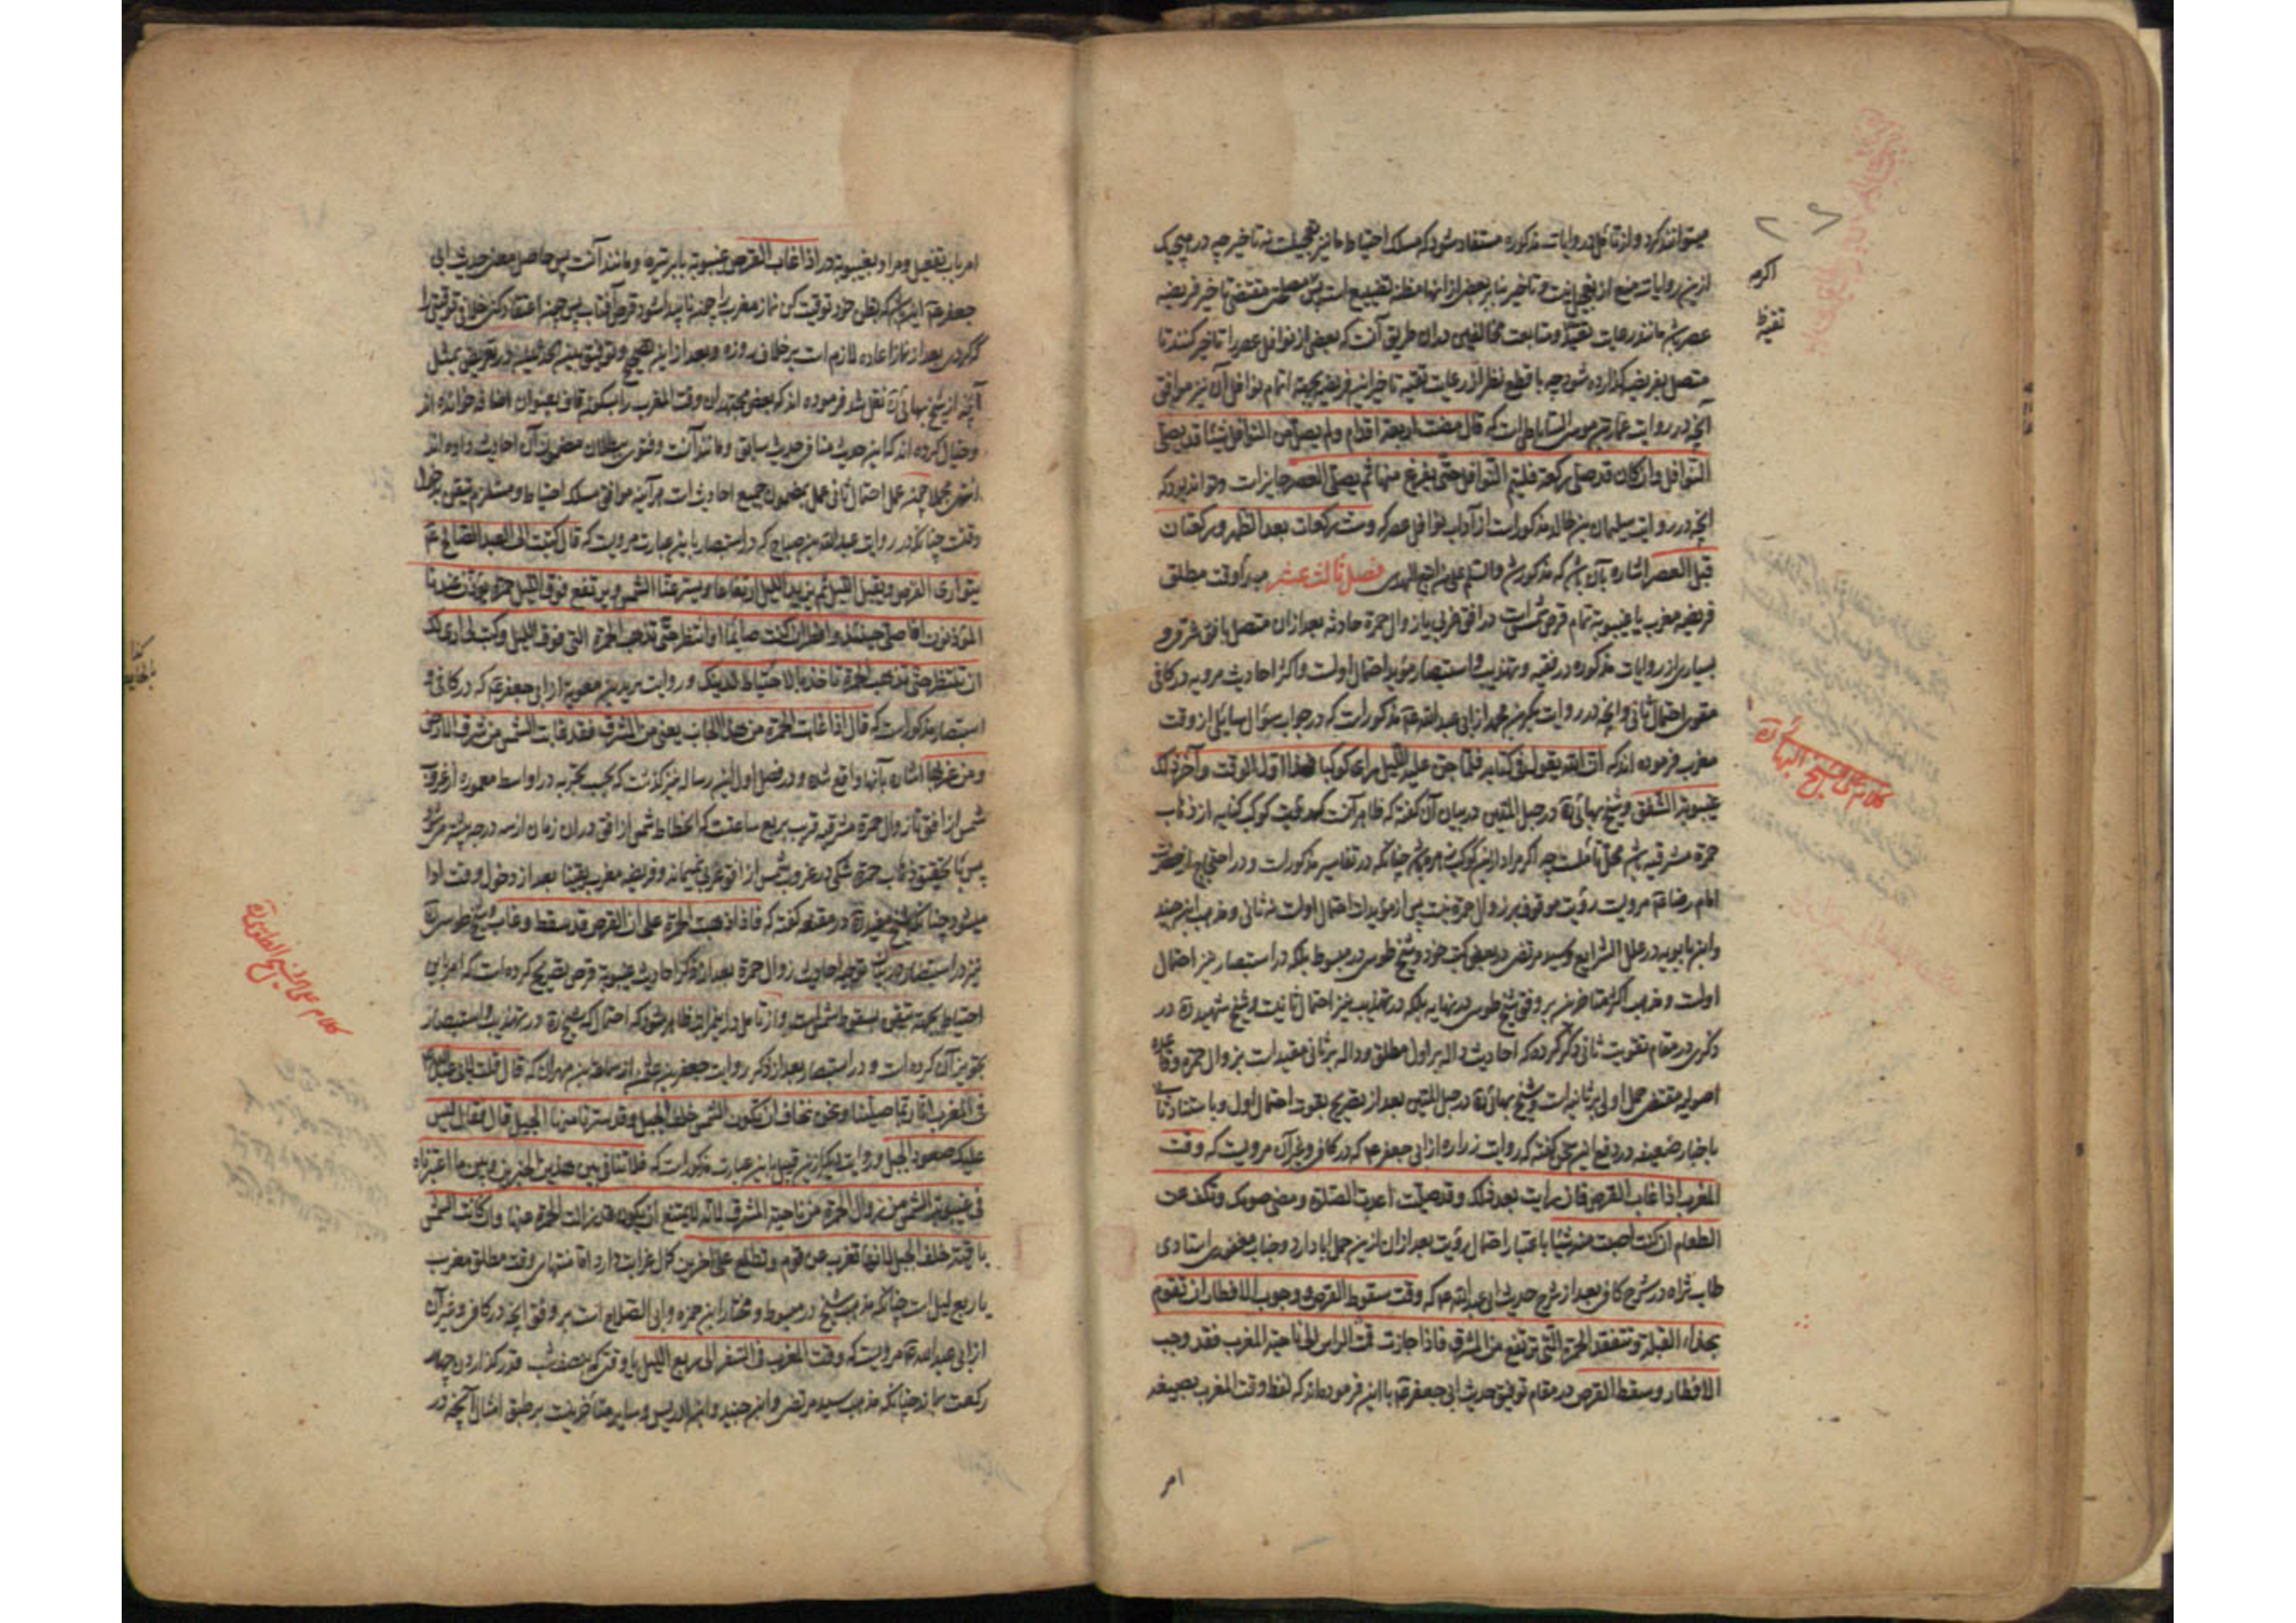 میتوانند کرد و از تأمل در روایات مذکوره مستفاد میشود که مسلک احتیاط ما نیز تعجیلست نه تاخیر چه در هیچیک
ازین روایات منع از تعجیل نیست و تاخیر بنا بر بعضی از آنها مظنه تضییع است پس مصلحت مقتضی تاخیر فریضه
عصر باشد مانند رعایت تقیه و متابعت مخالفین در آن طریق آنست که بعضی از نوافل عصر را تاخیر کنند تا
متصل بفریضه گذارده شود چه با قطع نظر از رعایت تقیه تاخیر این فریضه بجهة اتمام نوافل آن نیز موافق
آنچه در روایت عمار بن موسی الساباطی است که قال مضت اربعة اقدام ولم یصل من النوافل شیئا قد یصلی
النوافل وان کان قد صلی رکعة فلیتم النوافل حتی یفرغ منها ثم یصلی العصر جایز است و تواند بود که
آنچه در روایت سلیمان بن خالد مذکور است از آداب نوافل عصر که و ست رکعات بعد الظهر و رکعتان
قبل العصر اشاره بآن باشد که مذکور شد والسلم علی من اتبع الهدی فصل ثالث عشر مبدأ وقت مطلق
فریضه مغرب یا غیبوبة تمام قرص شمس است در افق غربی یا زوال حمرة حادثه بعد از آن متصل بافق شرقی و
بسیاری از روایات مذکوره در فقیه و تهذیب و استبصار مؤید احتمال اولست و اکثر احادیث مرویه در کافی
مقوی احتمال ثانی و آنچه در روایت بکر بن محمد از ابی عبد الله عم مذکور است که در جواب سؤال سایلی از وقت
مغرب فرموده اند که ان الله یقول فی کتابه فلما جن علیه اللیل رای کوکبا فهذا اول الوقت و آخر ذلک
غیبوبة الشفق و شیخ بهائی ره در حبل المتین در بیان آن گفته که ظاهر آنست که رؤیت کوکب کنایه از ذهاب
حمرة مشرقیه باشد محل تأملست چه اگر مراد ازین کوکب زهره باشد چنانکه در تفاسیر مذکور است و در احتجاج از حضرت
امام رضا عم مرویست رؤیت موقوف بر زوال حمرة نیست پس از مؤیدات احتمال اولست نه ثانی و مذهب ابن جنید
وابن بابویه در علل الشرایع و سید مرتضی در بعضی کتب خود و شیخ طوسی در مبسوط بلکه در استبصار نیز احتمال
اولست و مذهب اکثر متاخرین بر وفق شیخ طوسی در نهایه بلکه در تهذیب نیز احتمال ثانیست و شیخ شهید ره در
ذکری در مقام تقویت ثانی ذکر کرده که احادیث داله بر اول مطلق و داله بر ثانی مقیدات بزوال حمره و قاعده
اصولیه مقتضی حمل اولی بر ثانیه است و شیخ بهائی ره در حبل المتین بعد از تصریح بقوت احتمال اول و با ستناد ثانی
باخبار ضعیفه در دفع این سخن گفته که روایت زراره از ابی جعفر عم که در کافی و غیر آن مرویست که وقت
المغرب اذا غاب القرص فان رایت بعد ذلک وقد صلیت اعدت الصلوة و مضی صومک و تکف عن
الطعام ان کنت اصبت منه شیئا باعتبار احتمال رؤیت بعد از آن ازین حمل ابا دارد و جناب مغفوری استادی
طاب ثراه در شرح کافی بعد از شرح حدیث ابی عبد الله عم که وقت سقوط القرص و وجوب الافطار ان تقوم
بحذاء القبلة و تتفقد الحمرة التی ترتفع من المشرق فاذا جازت قمة الراس الی ناحیة المغرب فقد وجب
الافطار و سقط القرص در مقام توفیق حدیث ابی جعفر عم با این فرموده اند که لفظ وقت المغرب بصیغه
امر
۲۰۶
اکرمه
تقیظ
کلام علی شیخ البهائی ره
امر باب تفعیل و مراد بغیبوبة در اذا غاب القرص غیبوبة بابر تیره و مانند آنست پس حاصل معنی حدیث ابی
جعفر عم این باشد که بظن خود توقیت کن نماز مغرب را چون ناپیدا شود قرص آفتاب پس چون اعتقاد کنی خلاف توقیتی را
که کردی بعد از نماز اعاده لازم است بر خلاف روزه و بعد ازین تصحیح و توفیق بین الحدیثین در تعریض بمثل
آنچه از شیخ بهائی ره نقل شد فرموده اند که بعضی مجتهدان وقت المغرب را بسکون قاف بعنوان اضافه خوانده اند
و خیال کرده اند که این حدیث منافی حدیث سابق و مانند آنست و فتوی ببطلان مضمون آن احادیث داده اند
انتهی مجملا چون عمل احتمال ثانی عمل بمضمون جمیع احادیث است هر آینه موافق مسلک احتیاط و مستلزم تیقن بدخول
وقتست چنانکه در روایت عبد الله بن صباح که در استبصار باین عبارت مرویست که قال کتبت الی العبد الصالح عم
یتواری القرص و یقبل اللیل ثم یزید اللیل ارتفاعا و یستر عنا الشمس و یرتفع فوق اللیل حمرة و یؤذن عندنا
المؤذنون افاصلی حینئذ و افطر ان کنت صائما او انتظر حتی تذهب الحمرة التی فوق اللیل و کتب الی اری لک
ان تنتظر حتی تذهب الحمرة و تاخذ بالاحتیاط لدینک و روایت برید بن معویه از ابی جعفر عم که در کافی و
استبصار مذکور است که قال اذا غابت الحمرة من هذا الجانب یعنی من المشرق فقد غابت الشمس من شرق الارض
و من غربها اشاره بآنها واقع شده و در فصل اول این رساله نیز گذشت که بحسب تجربه در اواسط معموره از غروب
شمس از افق تا زوال حمرة مشرقیه قریب بربع ساعتست که انحطاط شمس از افق در آن زمان از سه درجه بیشتر میشود
پس با تحقیق ذهاب حمرة شکی در غروب شمس از افق غربی نمیماند و فریضه مغرب یقینا بعد از دخول وقت ادا
میشود چنانکه شیخ مفید ره در مقنعه گفته که فاذا ذهبت الحمرة علم ان القرص قد سقط و غاب و شیخ طوسی ره
نیز در استبصار در بیان توجیه احادیث زوال حمرة بعد از ذکر احادیث غیبوبة قرص تصریح کرده است که اعتبار این
احتیاط بجهة تیقن بسقوط شمس است و از تامل در این مراتب ظاهر میشود که احتمالی که شیخ ره در تهذیب و استبصار
تجویز آن کرده است و در استبصار بعد از ذکر روایت جعفر بن عثمان از سماعة بن مهران که قال قلت لابی عبد الله
فی المغرب انا ربما صلینا و نحن نخاف ان تکون الشمس خلف الجبل و قد سترنا منها الجبل قال فقال لیس
علیک صعود الجبل و روایت دیگر ازین قبیل باین عبارت مذکور است که فلا تنافی بین هذین الخبرین و بین ما اعتبرناه
فی غیبوبة الشمس من زوال الحمرة من ناحیة المشرق لانه لا یمتنع ان یکون قد زالت الحمرة عنها و ان کانت الشمس
باقیة خلف الجبل لانها تغرب عن قوم و تطلع علی آخرین کمال غرابت دارد اما منتهای وقت مطلق مغرب
یا ربع لیل است چنانکه مذهب شیخ در مبسوط و مختار ابن حمزه و ابی الصلاح است بر وفق آنچه در کافی و غیر آن
از ابی عبد الله عم مرویست که وقت المغرب فی السفر الی ربع اللیل یا وقتی که بنصف شب قدر گذاردن چهار
رکعت بماند چنانکه مذهب سید مرتضی و ابن جنید و ابن ادریس و سایر متاخرینست بر طبق امثال آنچه در
کلام علی الشیخ الطوسی ره